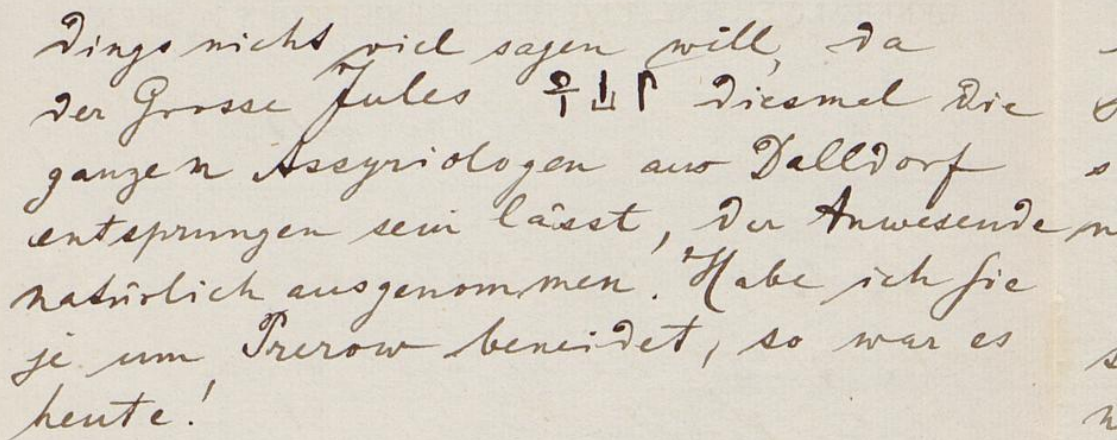 dings nicht viel sagen will, da
der Grosse Jules 𓋹𓊖𓋴 diesmal die
ganzen Assyriologen aus Dalldorf
entsprungen sein lässt, der Anwesende
natürlich ausgenommen. Habe ich Sie
je um Prerow beneidet, so war es
heute!